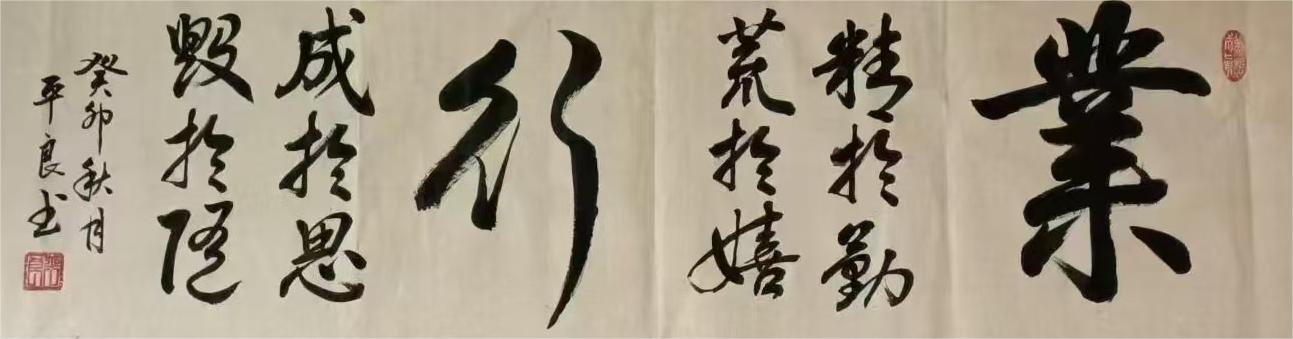 業
精於勤
荒於嬉
行
成於思
毀於隨
癸卯秋月
平良书